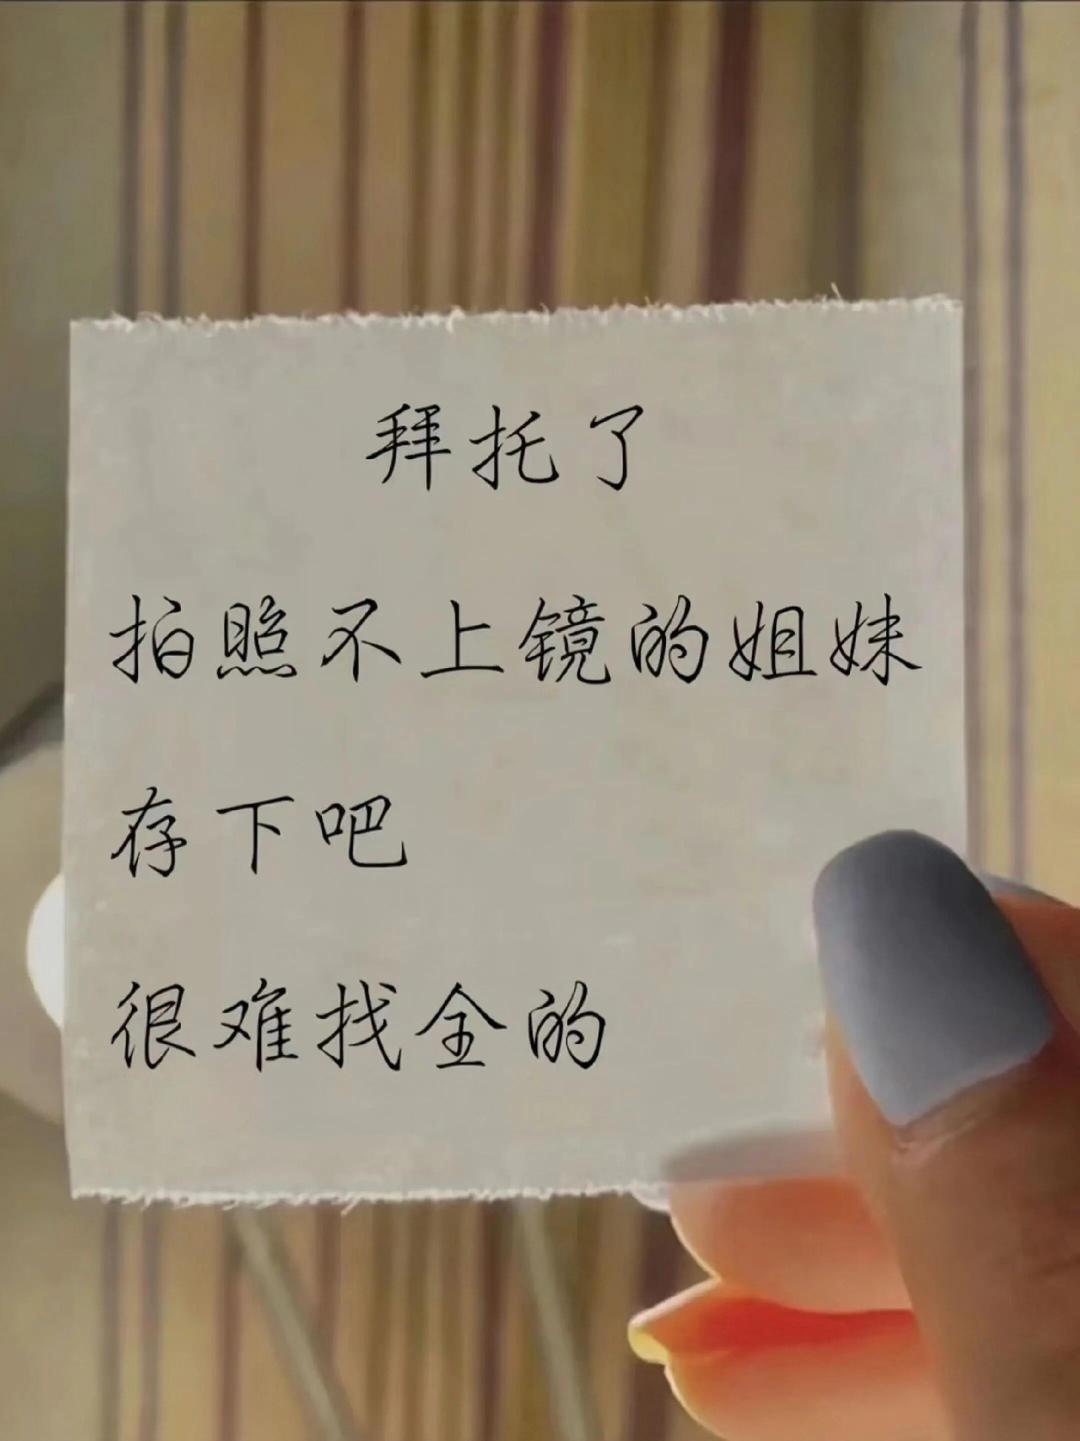 拜托了
拍照不上镜的姐妹
存下吧
很难找全的